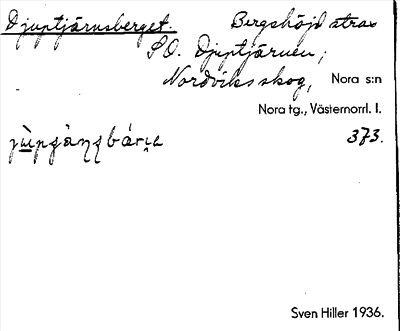 Djuptjärnsberget. Bergshöjd strax
S.O. Djuptjärnen;
Nordviks skog, Nora s:n
Nora tg., Västernorrl. l.
373.
Sven Hiller 1936.